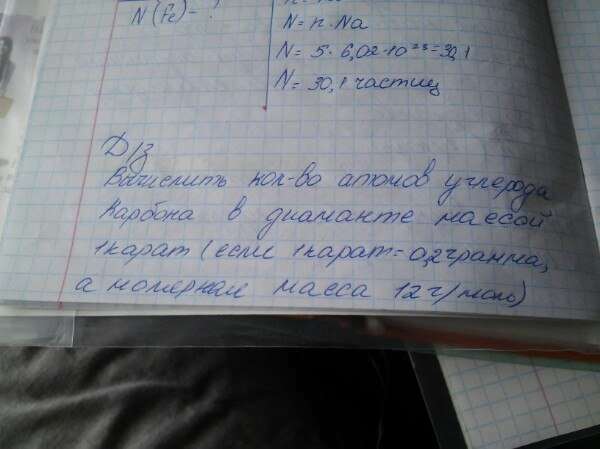 N (Fe) - ?
N = n · Na
N = 5 · 6,02 · 10²³ = 30,1
N = 30,1 частиц
Д/з
Вычислить кол-во атомов углерода
Карбона в диаманте массой
1 карат (если 1 карат = 0,2 грамма,
а молярная масса 12 г/моль)